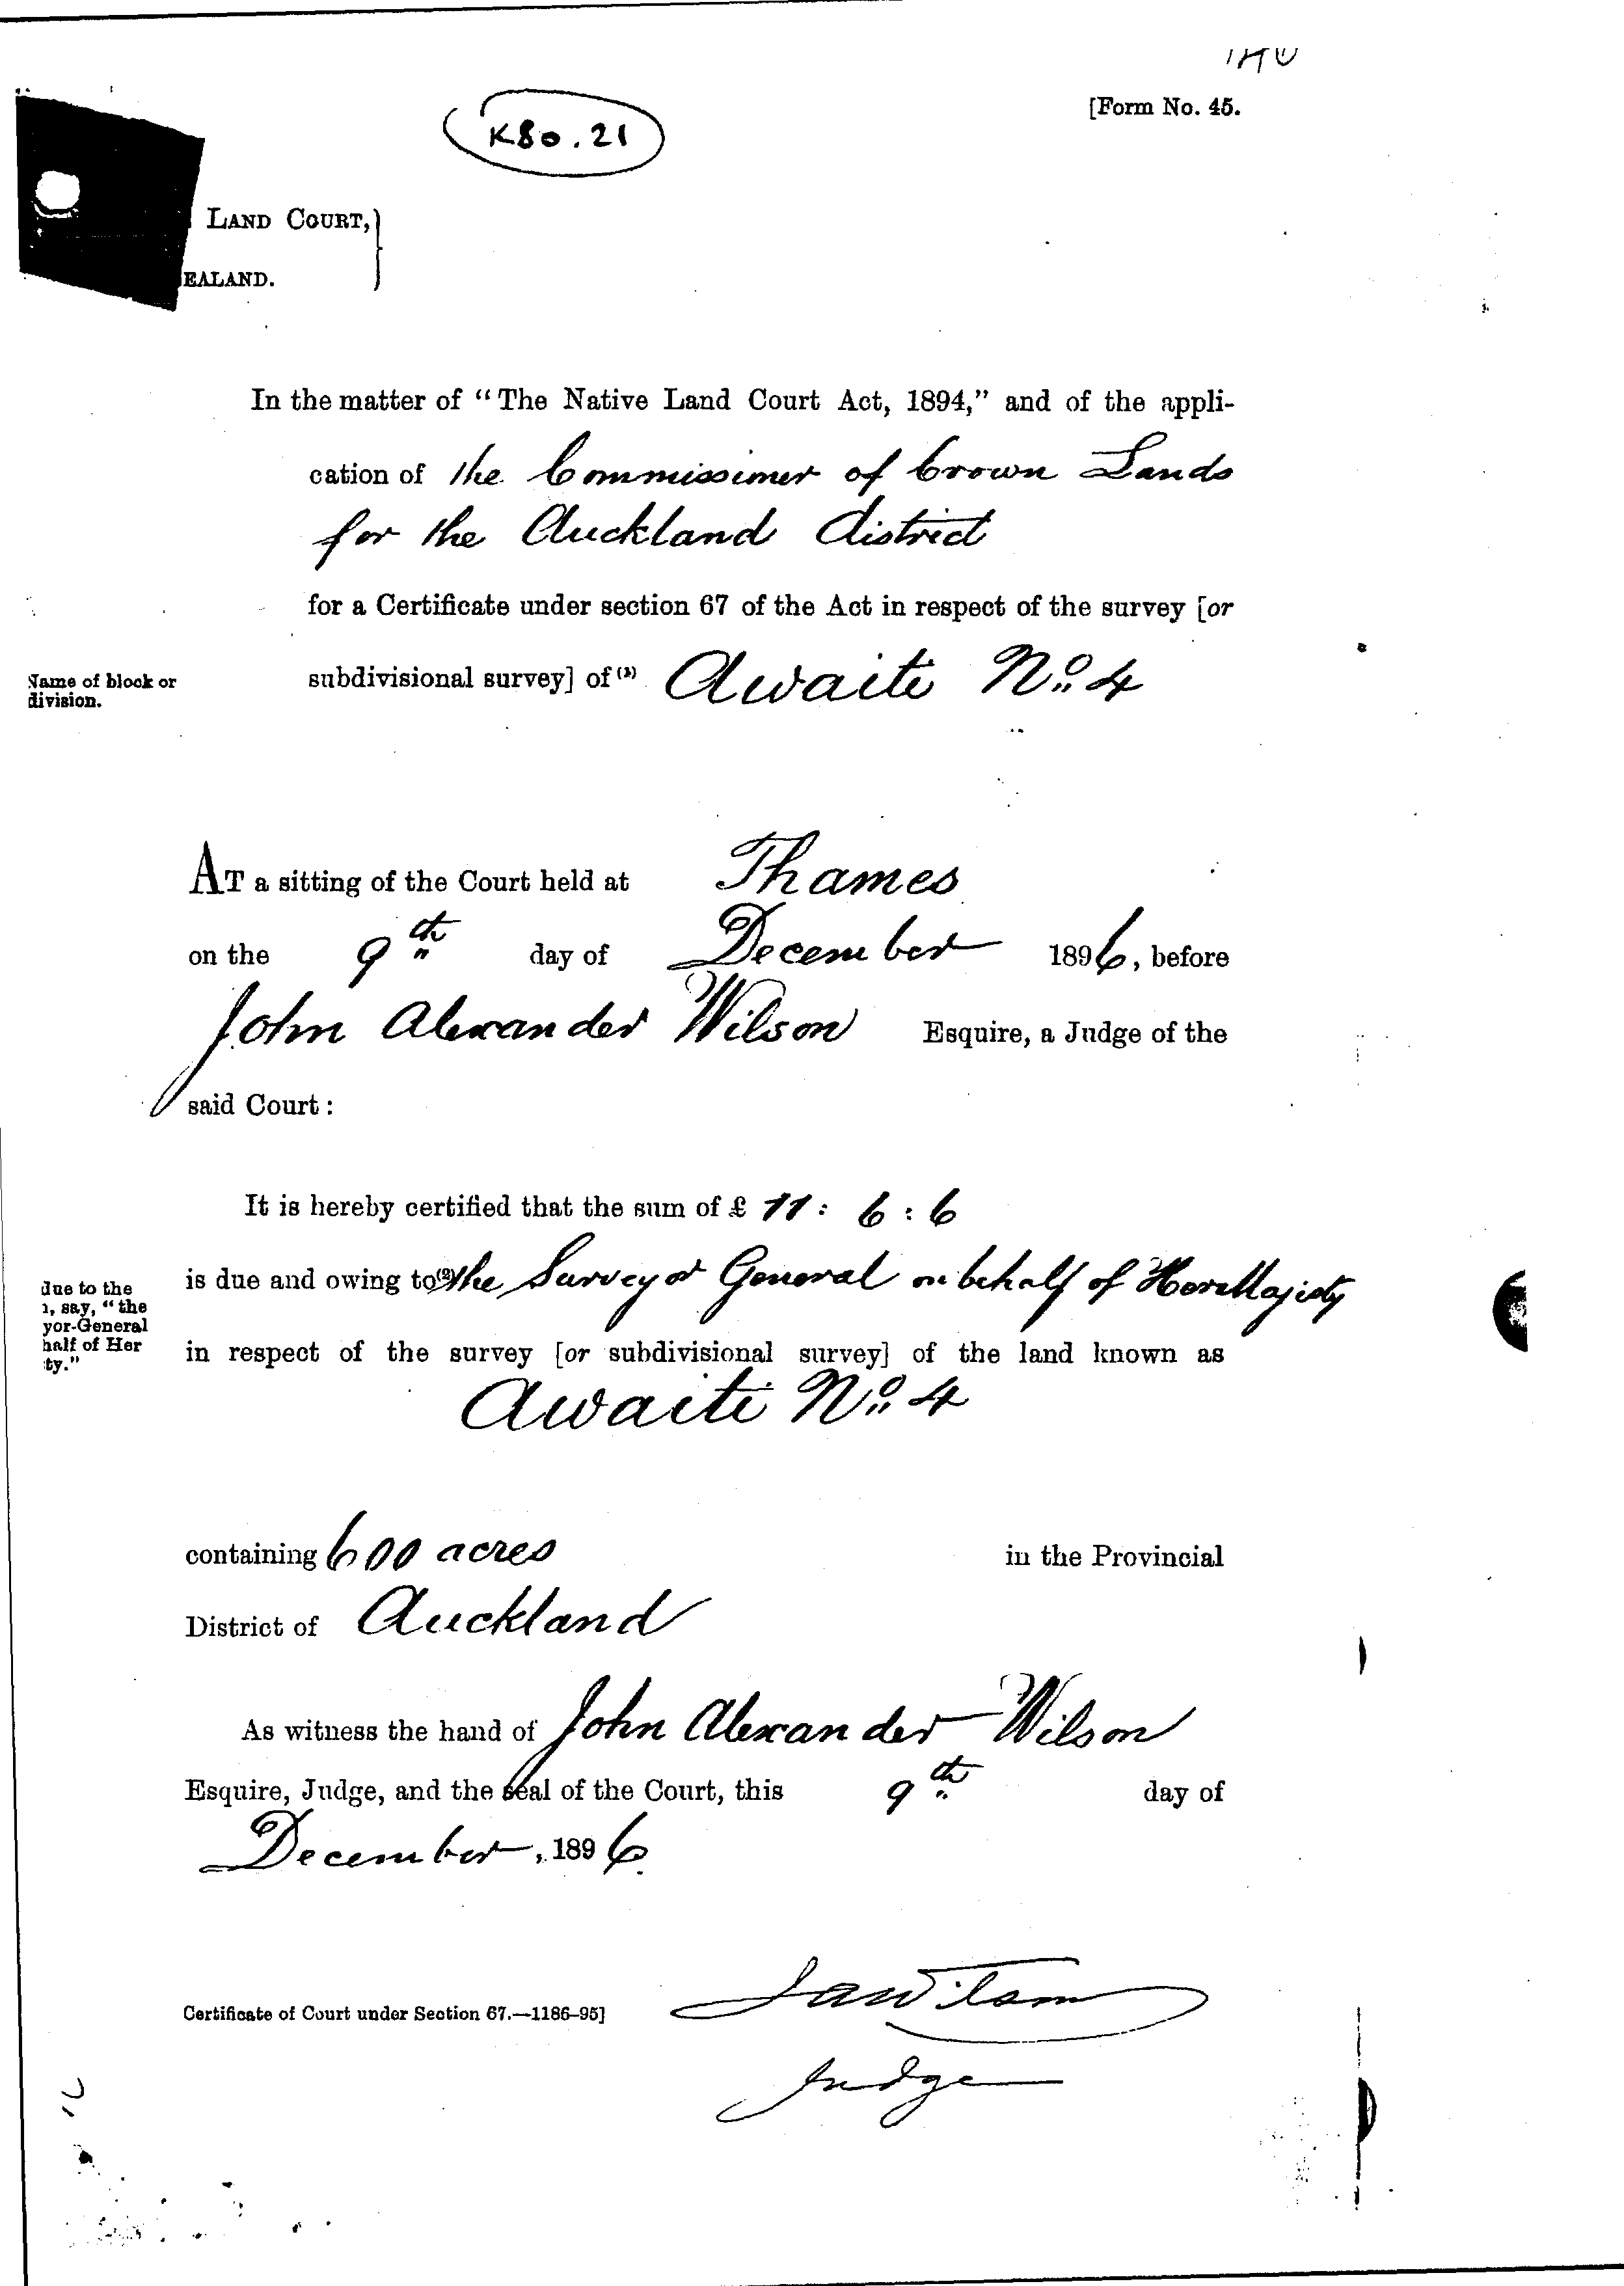 [Form No. 45.
K80.21
LAND COURT, }
EALAND.
In the matter of “The Native Land Court Act, 1894,” and of the appli-
cation of the Commissioner of Crown Lands
for the Auckland district
for a Certificate under section 67 of the Act in respect of the survey [or
Name of block or
division.
subdivisional survey] of (1) Awaiti No. 4
AT a sitting of the Court held at Thames
on the 9th day of December 1896, before
John Alexander Wilson Esquire, a Judge of the
said Court :
It is hereby certified that the sum of £ 11 : 6 : 6
is due and owing to (2) the Surveyor General on behalf of Her Majesty
due to the
n, say, “the
yor-General
half of Her
ty.”
in respect of the survey [or subdivisional survey] of the land known as
Awaiti No. 4
containing 600 acres in the Provincial
District of Auckland
As witness the hand of John Alexander Wilson
Esquire, Judge, and the seal of the Court, this 9th day of
December, 1896.
JAWilson
Certificate of Court under Section 67.—1186–95]
Judge